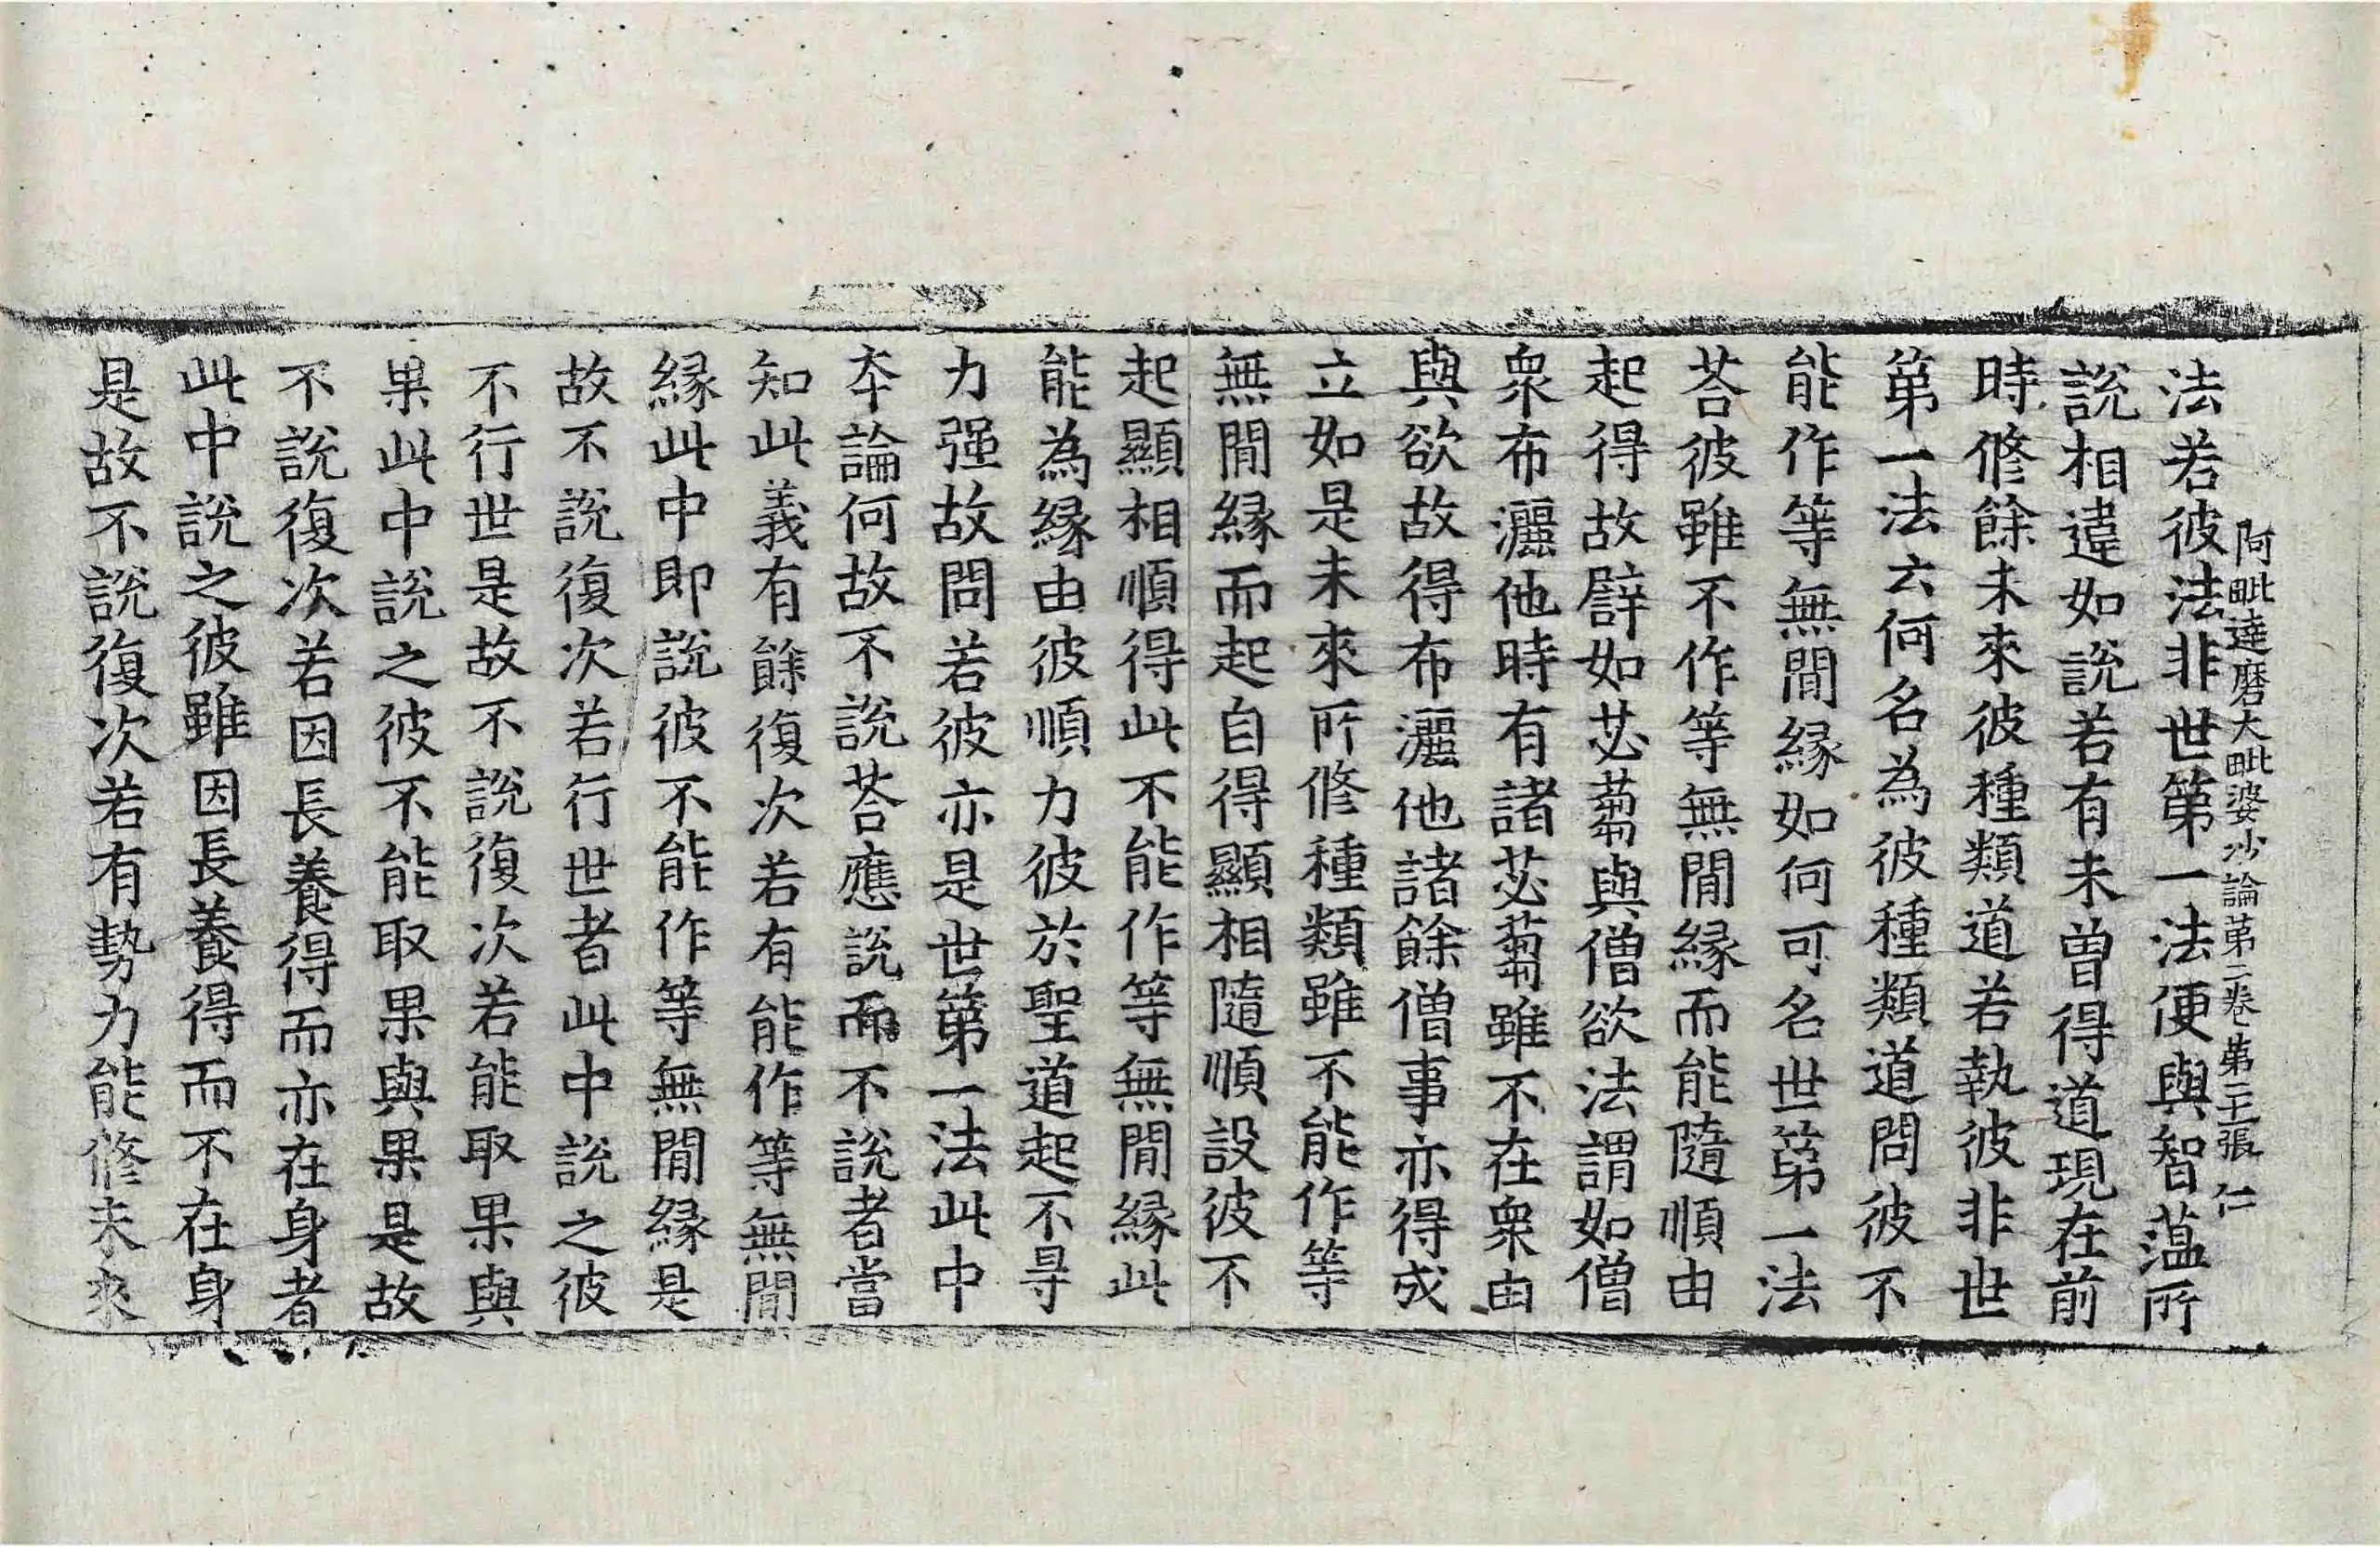 阿毗達磨大毗婆沙論第二卷第三張仁
法若彼法非世第一法便與智蕰所
說相違如說若有未曾得道現在前
時修餘未來彼種類道若執彼非世
第一法云何名為彼種類道問彼不
能作等無間緣如何可名世第一法
荅彼雖不作等無間緣而能隨順由
起得故譬如苾蒭與僧欲法謂如僧
衆布灑他時有諸苾蒭雖不在衆由
與欲故得布灑他諸餘僧事亦得成
立如是未來所修種類雖不能作等
無間緣而起自得顯相隨順設彼不
起顯相順得此不能作等無間緣此
能為緣由彼順力彼於聖道起不㝵
力强故問若彼亦是世第一法此中
本論何故不說荅應說而不說者當
知此義有餘復次若有能作等無間
緣此中即說彼不能作等無間緣是
故不說復次若行世者此中說之彼
不行世是故不說復次若能取果與
果此中說之彼不能取果與果是故
不說復次若因長養得而亦在身者
此中說之彼雖因長養得而不在身
是故不說復次若有勢力能修未來